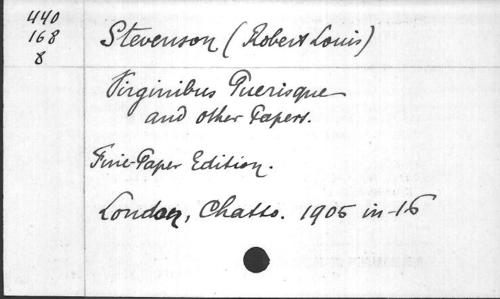 440
168
8
Stevenson (Robert Louis)
Virginibus Puerisque
and other Papers.
Fine-Paper Edition.
London, Chatto. 1905 in-16